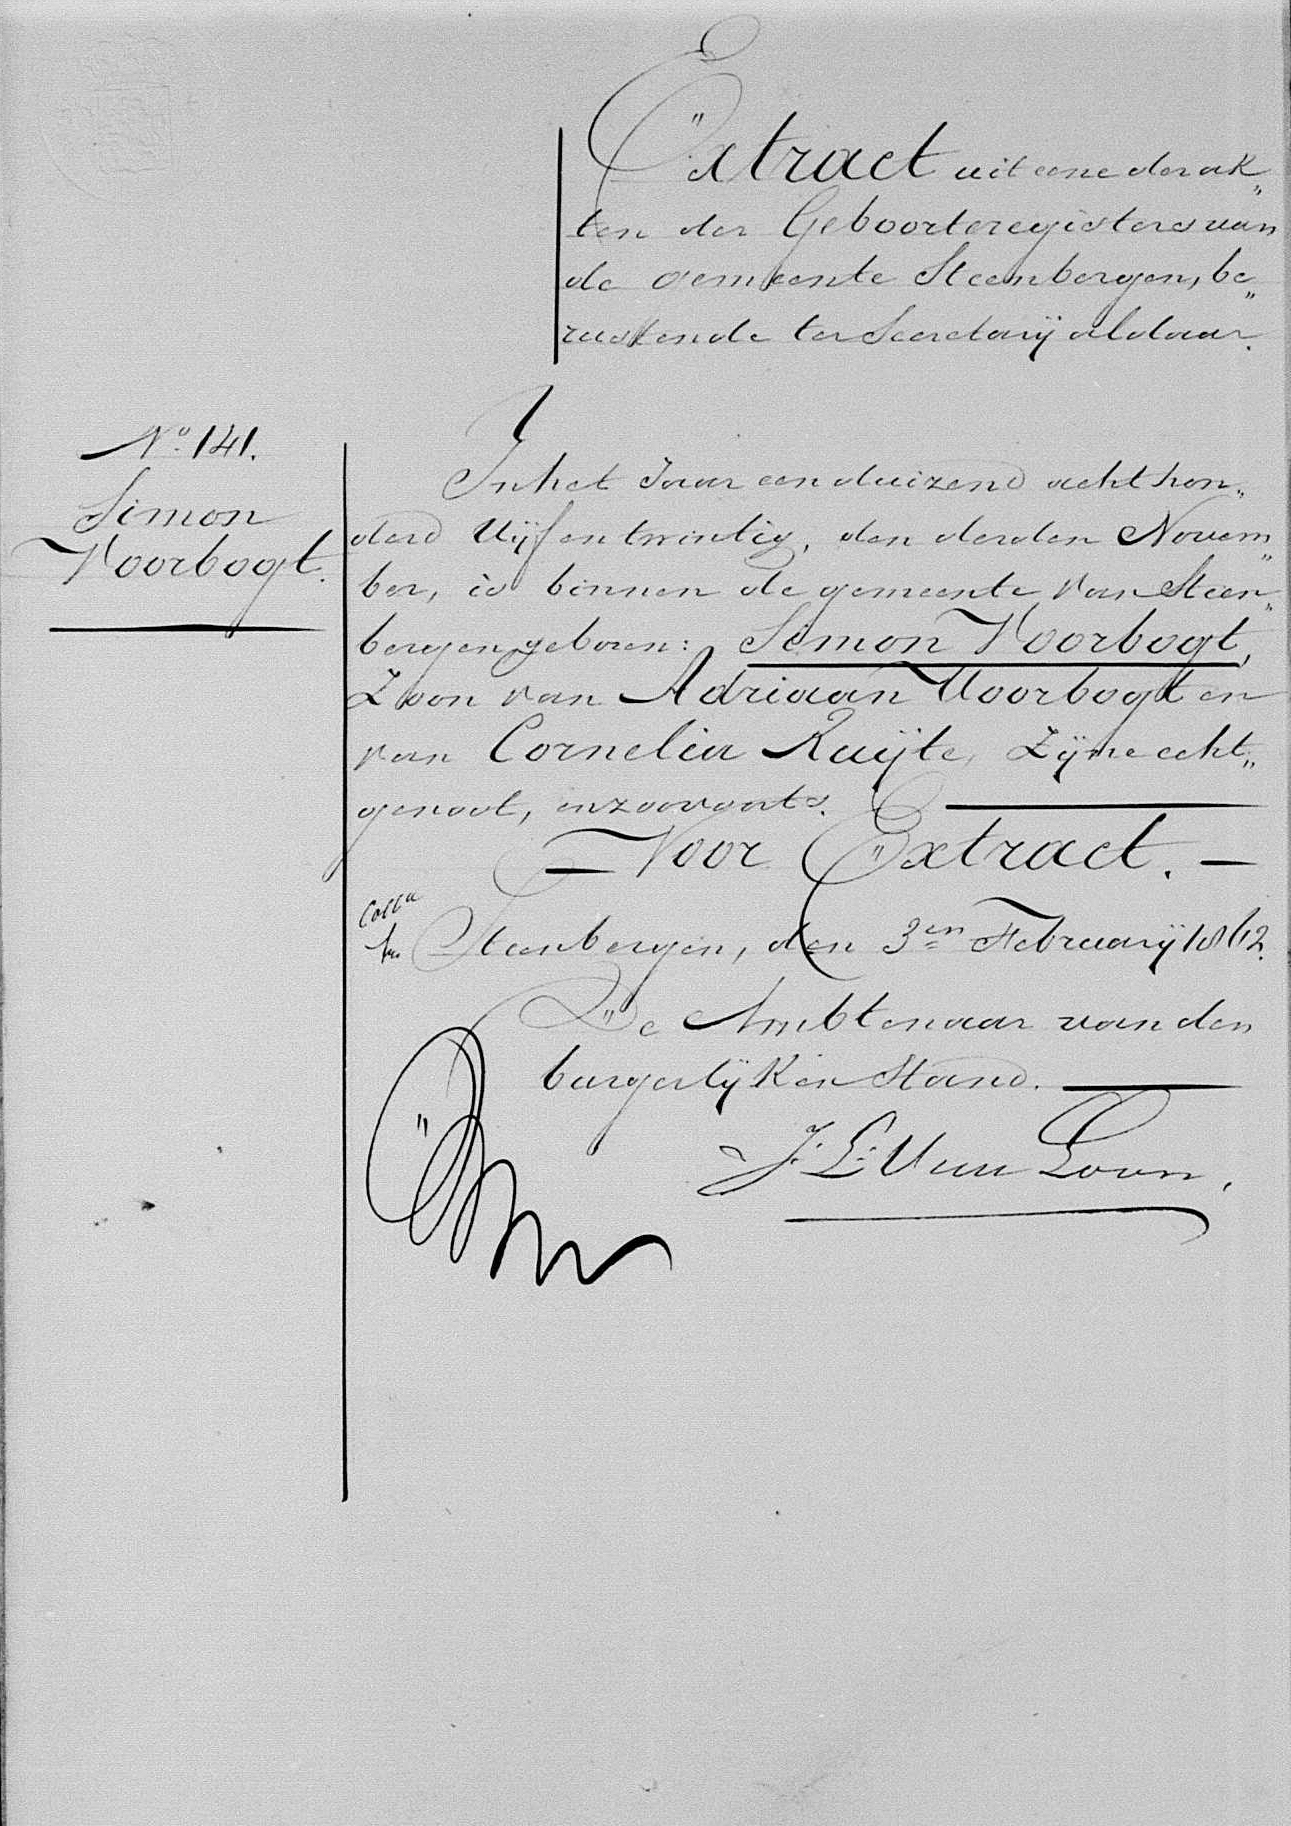 Extract uit eene der ak„
ten der Geboorteregisters van
de gemeente Steenbergen, be„
rustende ter Secretarij aldaar.
No. 141.
Simon
Voorbogt.
In het Jaar een duizend acht hon„
derd Vijf en twintig, den derden Novem„
ber, is binnen de gemeente van Steen„
bergen geboren: Simon Voorbogt,
Zoon van Adriaan Voorbogt en
van Cornelia Kuijte, Zijne echt„
genoot, enzoovoorts.
Voor Extract.
Steenbergen, den 3en Februarij 1862.
De Ambtenaar van den
burgerlijken Stand.
J. L. Van Loon.